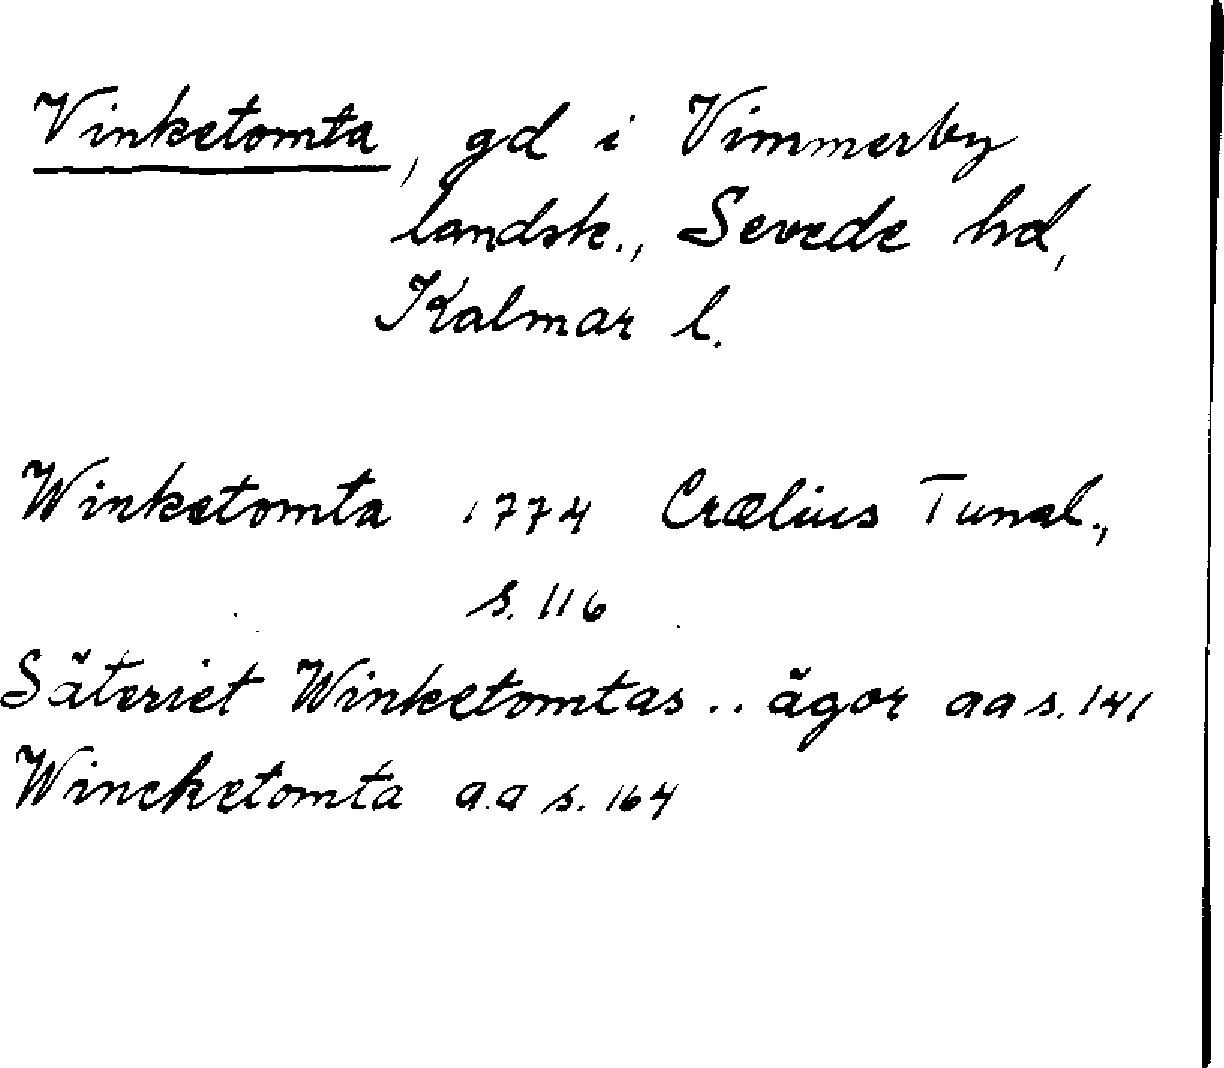 Vinketomta, gd i Vimmerby
landsk., Sevede hd,
Kalmar l.
Winketomta 1774 Crælius Tunal.,
s. 116
Säteriet Winketomtas .. ägor aa s. 141
Wincketomta a.a s. 164